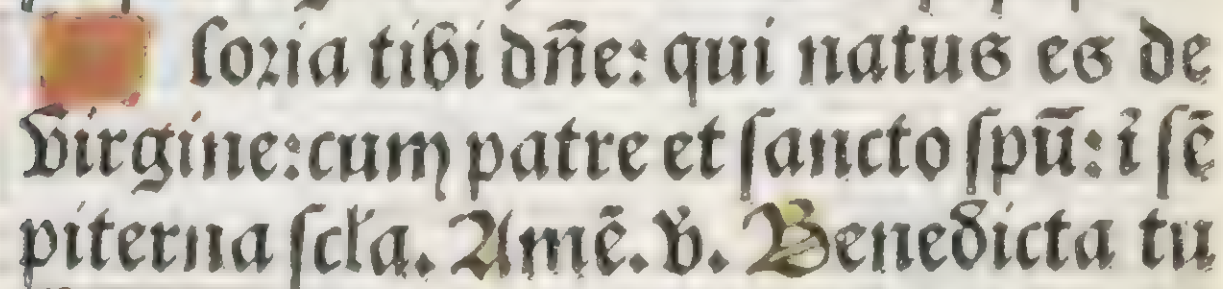 loria tibi dn̄e: qui natus es de
virgine: cum patre et sancto spū: ī sē
piterna scl̄a. Amē. v̄. Benedicta tu